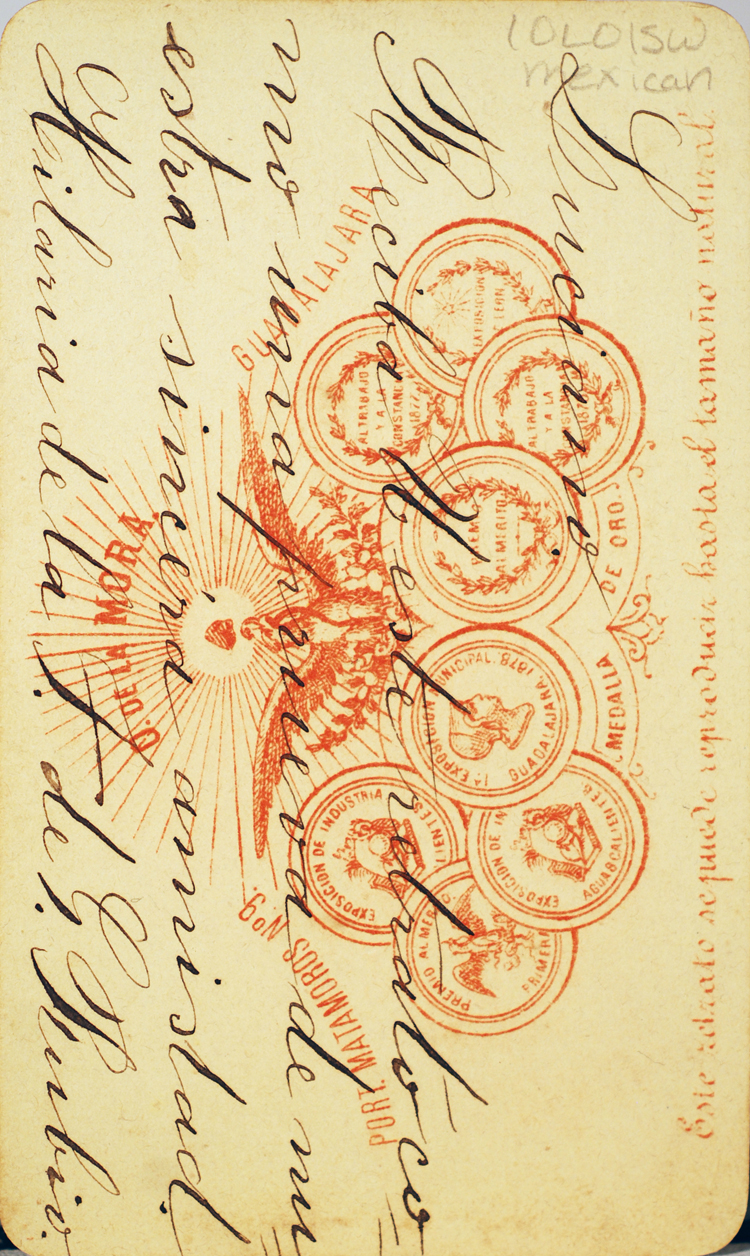 10L01SW
mexican
Luciano
Reciba Ud este retrato co
mo una prueva de nu
estra sincera amistad.
Hilaria de la T. de G. Rubio.
Este retrato se puede reproducir hasta el tamaño natural.
MEDALLA DE ORO.
LA EXPOSICION LEON
AL TRABAJO Y A LA CONSTANCIA 1877
AL TRABAJO Y A LA CONSTANCIA
PREMIO AL MERITO
1A EXPOSICION MUNICIPAL. 1878. GUADALAJARA
EXPOSICION DE INDUSTRIA
EXPOSICION DE IN AGUASCALIENTES
PREMIO AL MER PRIMER
GUADALAJARA
PORT. MATAMOROS No 9.
O. DE LA MORA